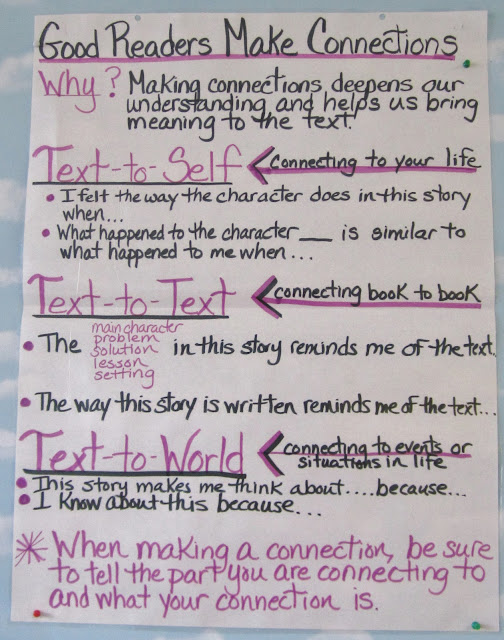 Good Readers Make Connections
Why? Making connections deepens our
understanding and helps us bring
meaning to the text.
Text-to-Self < connecting to your life
• I felt the way the character does in this story
when...
• What happened to the character ___ is similar to
what happened to me when...
Text-to-Text < connecting book to book
main character
problem
• The solution in this story reminds me of the text..
lesson
setting
• The way this story is written reminds me of the text...
Text-to-World < connecting to events or
situations in life
• This story makes me think about....because...
• I know about this because...
* When making a connection, be sure
to tell the part you are connecting to
and what your connection is.